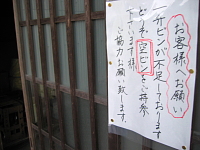 お客様へお願い
一升ビンが不足しております
どうぞ空ビンをご持参
下さいます様
ご協力お願い致します。